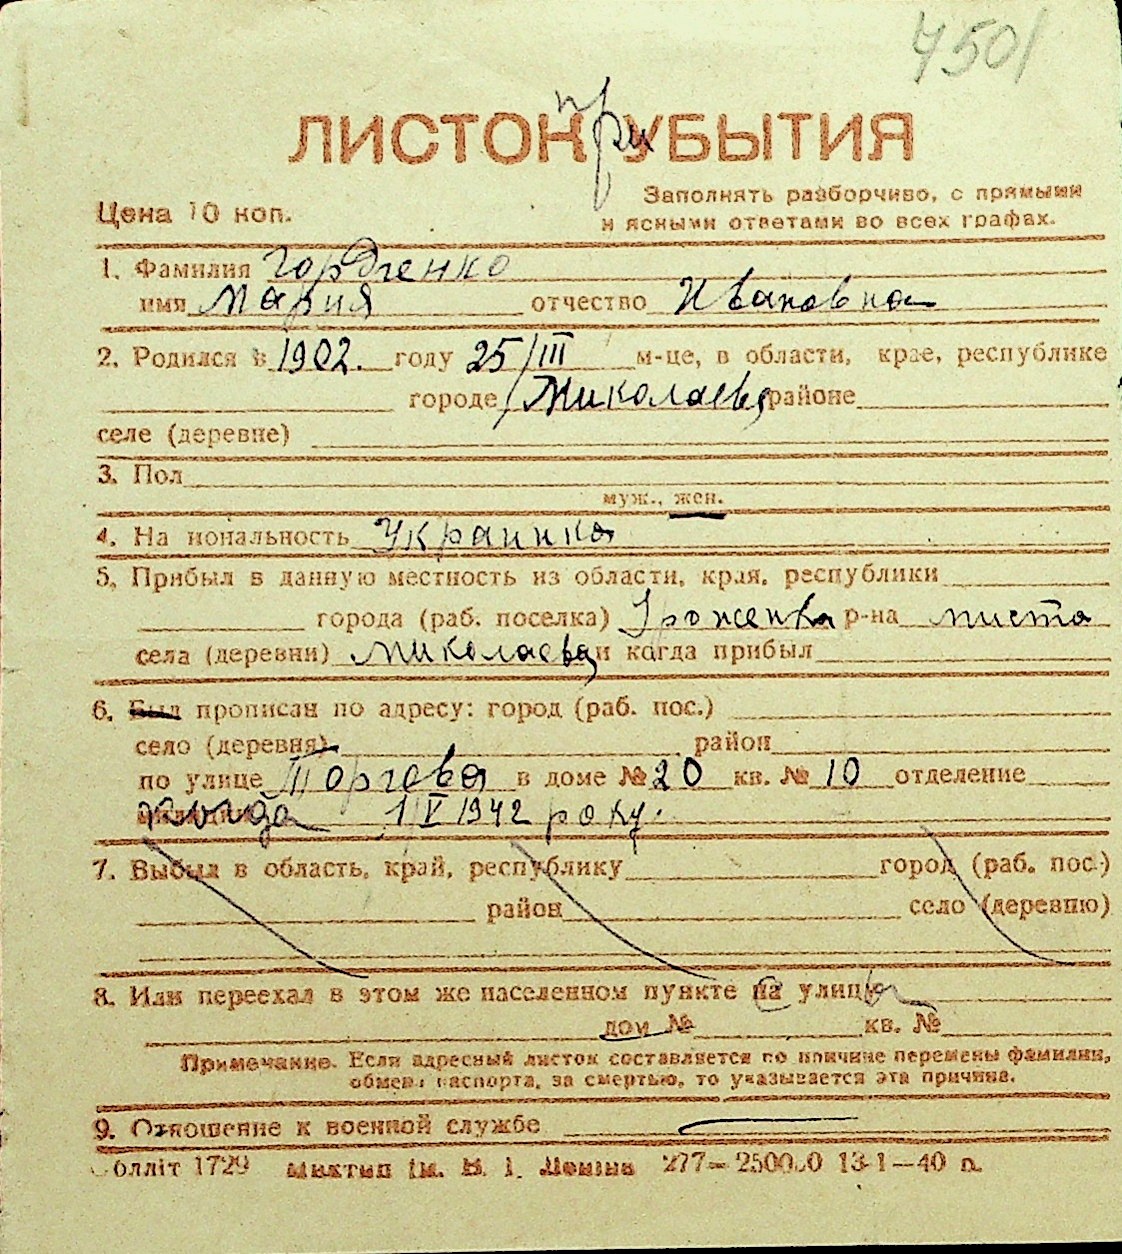 7501
ЛИСТОК УБЫТИЯ
при
Цена 10 коп.
Заполнять разборчиво, с прямыми
и ясными ответами во всех графах.
1. Фамилия Гордиенко
имя Мария отчество Ивановна
2. Родился в 1902. году 25/III м-це, в области, крае, республике
городе Миколаевѣ районе
селе (деревне)
3. Пол
муж., жен.
4. На иональность Украинка
5. Прибыл в данную местность из области, края, республики
города (раб. поселка) Уроженка р-на миста
села (деревни) Миколаева и когда прибыл
6. Был прописан по адресу: город (раб. пос.)
село (деревня) район
по улице Торгова в доме № 20 кв. № 10 отделение
1 V 1942 року.
7. Выбыл в область, край, республику город (раб. пос.)
район село (деревню)
8. Или переехал в этом же населенном пункте на улицу
дом № кв. №
Примечание. Если адресный листок составляется по причине перемены фамилии,
обмена паспорта, за смертью, то указывается эта причина.
9. Отношение к военной службе
Обліт 1729 Миктип ім. В. І. Леніна 277—250000 13-1—40 п.